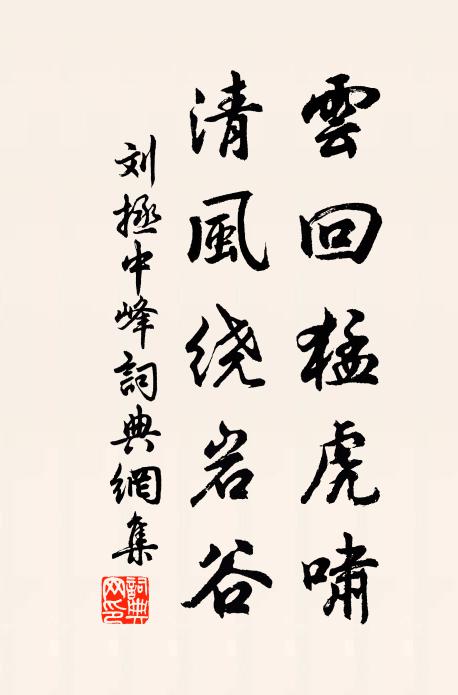 雲回猛虎嘯
清風绕岩谷
刘拯中峰詞典網集
詞典
网印